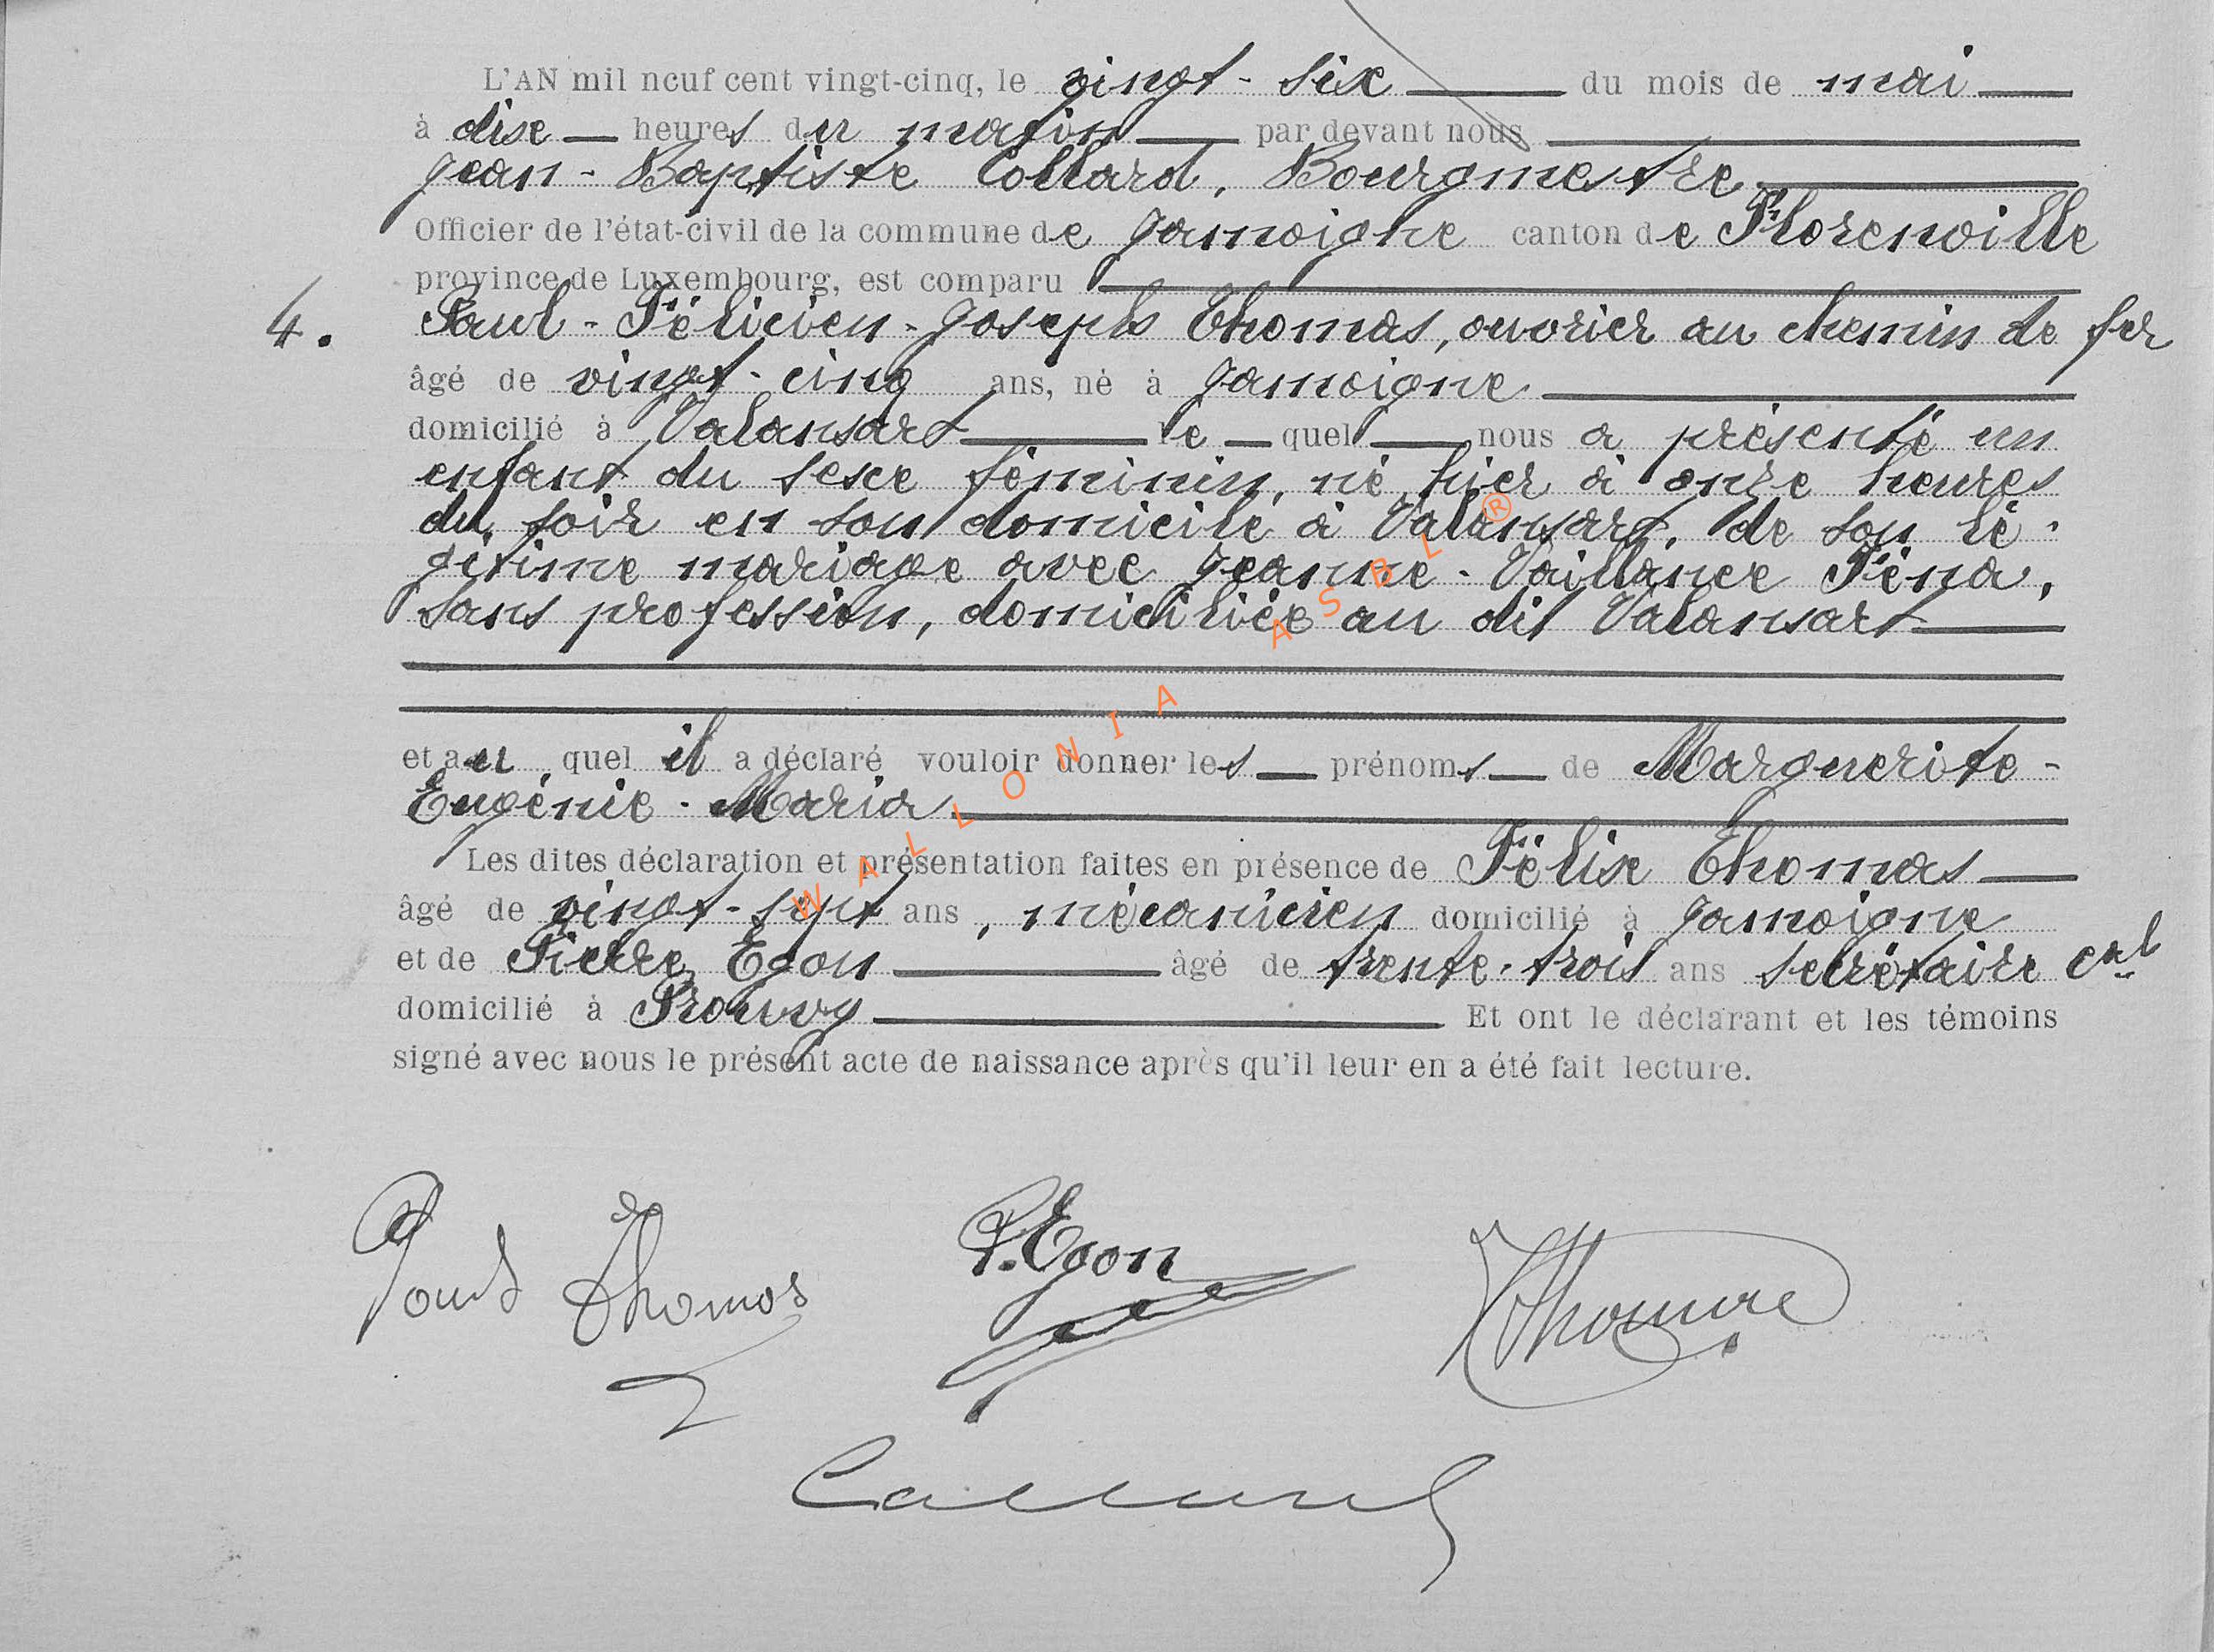 L'AN mil neuf cent vingt-cinq, le vingt-six du mois de mai
à dix heures du matin par devant nous
Jean-Baptiste Collard, Bourgmestre
Officier de l'état-civil de la commune de Jamoigne canton de Florenville
province de Luxembourg, est comparu
4. Paul-Félicien-Joseph Thomas, ouvrier au chemin de fer
âgé de vingt-cinq ans, né à Jamoigne
domicilié à Valansart le quel nous a présenté un
enfant du sexe féminin, né hier à onze heures
du soir en son domicile à Valansart, de son lé-
gitime mariage avec Jeanne-Vaillance Féna,
sans profession, domiciliée au dit Valansart
et au quel il a déclaré vouloir donner les prénoms de Marguerite-
Eugénie-Maria
Les dites déclaration et présentation faites en présence de Félix Thomas
âgé de vingt-sept ans, mécanicien domicilié à Jamoigne
et de Pierre Egon âgé de trente-trois ans secrétaire cal
domicilié à Prouvy Et ont le déclarant et les témoins
signé avec nous le présent acte de naissance après qu'il leur en a été fait lecture.
Paul Thomas P. Egon
WALLONIA ASBL ®